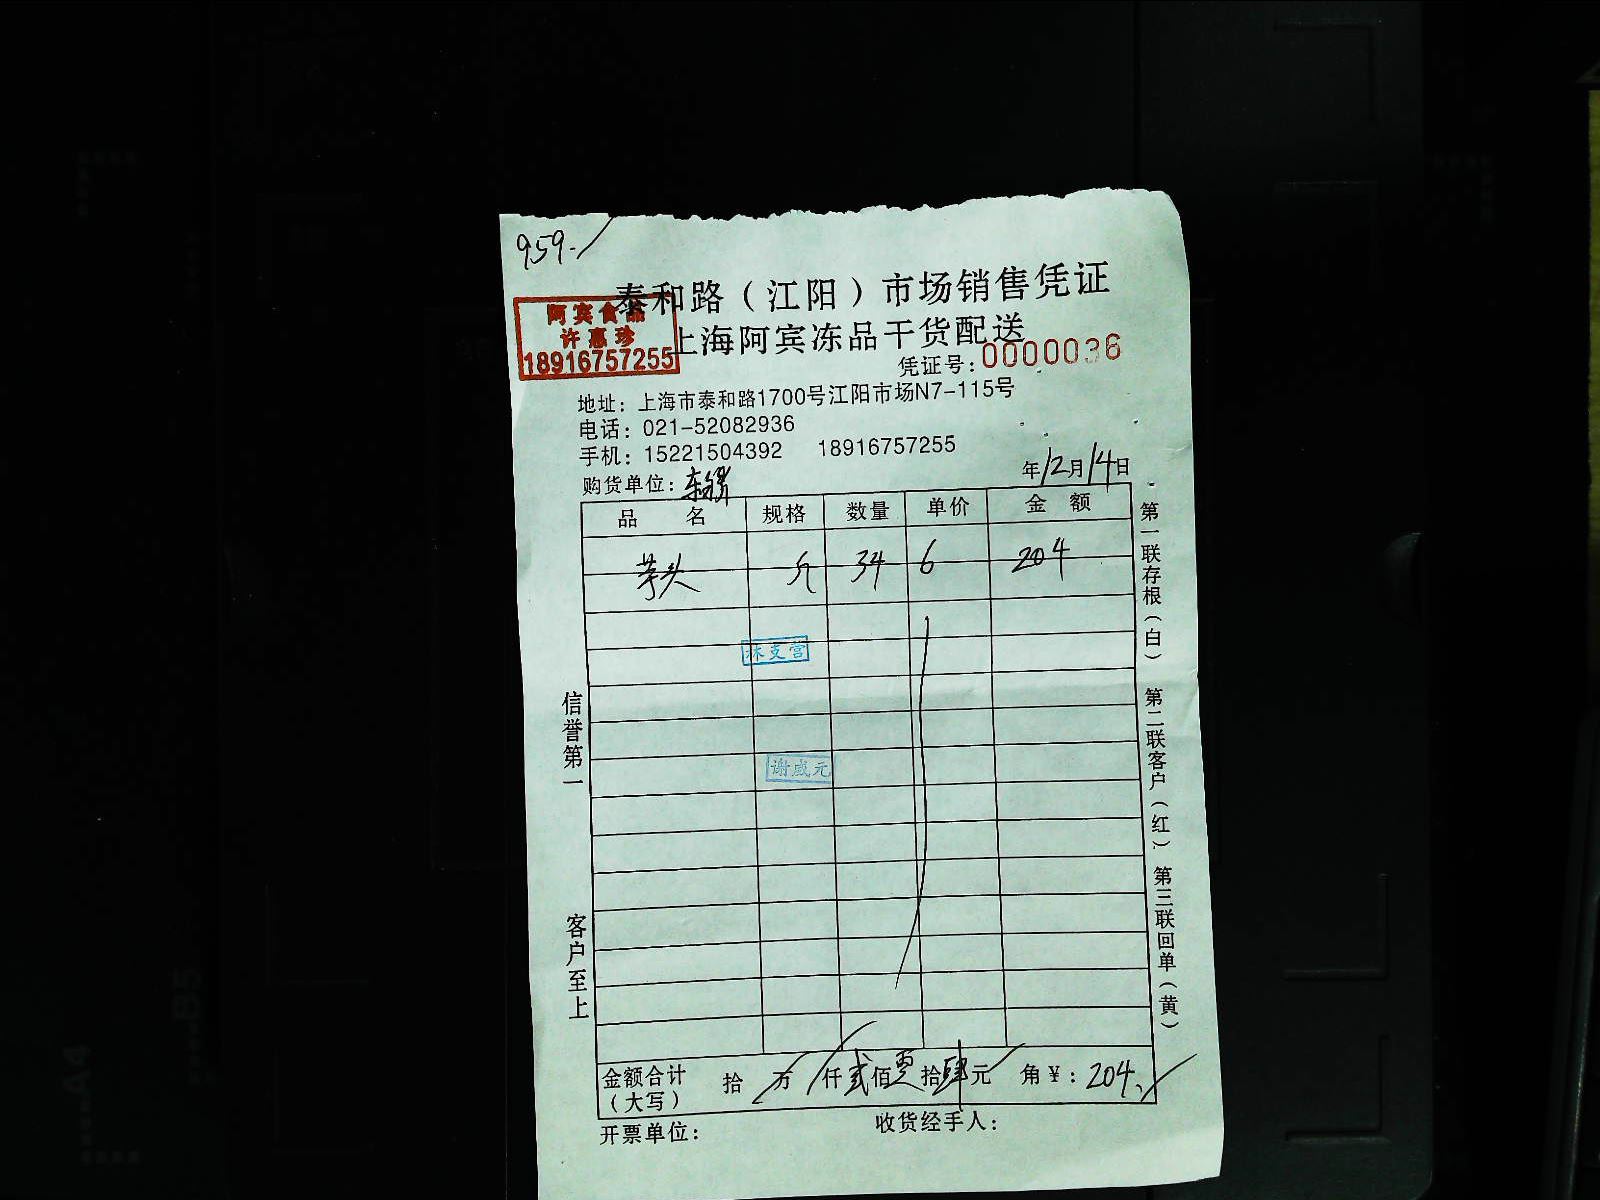 959.
泰和路（江阳）市场销售凭证
阿宾食品
许惠珍
18916757255
上海阿宾冻品干货配送
凭证号：0000036
地址：上海市泰和路1700号江阳市场N7-115号
电话：021-52082936
手机：15221504392 18916757255
购货单位： 年12月14日
品 名 规格 数量 单价 金 额
芋头 斤 34 6 204
林支营
谢咸元
信誉第一
客户至上
第一联存根（白） 第二联客户（红） 第三联回单（黄）
金额合计（大写） 拾 万 仟贰佰零拾肆元 角￥：204.
开票单位： 收货经手人：